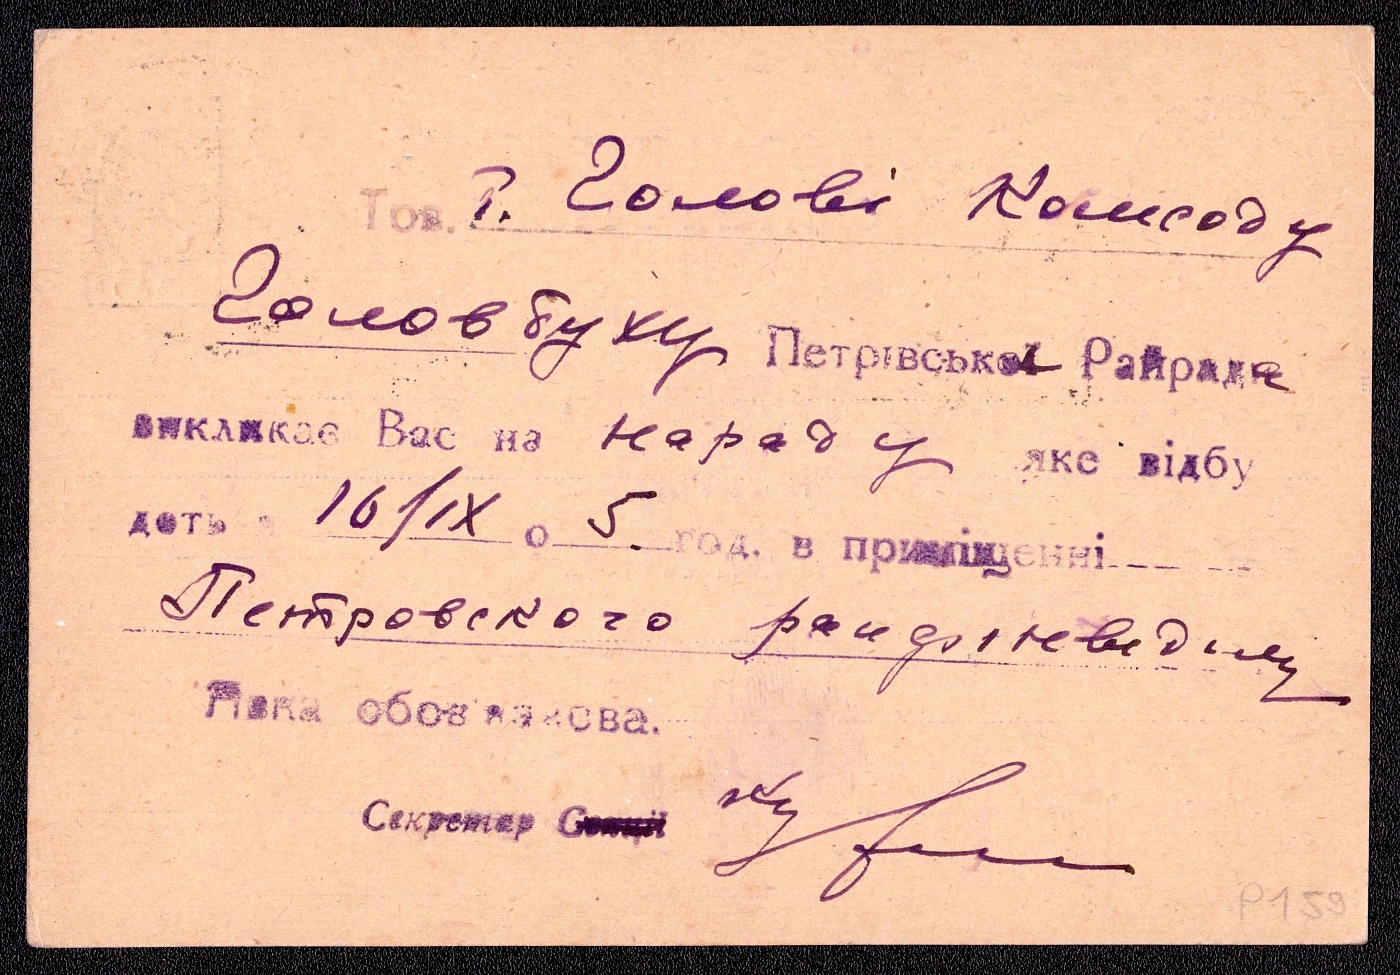 Тов. т. Голові Комсоду
Головбуху Петрівська Райрада
викликає Вас на нараду яке відбу
деть я 16/IX о 5. год. в приміщенні
Петровского райфінвідділу
Явка обов'язкова.
Секретар
P159